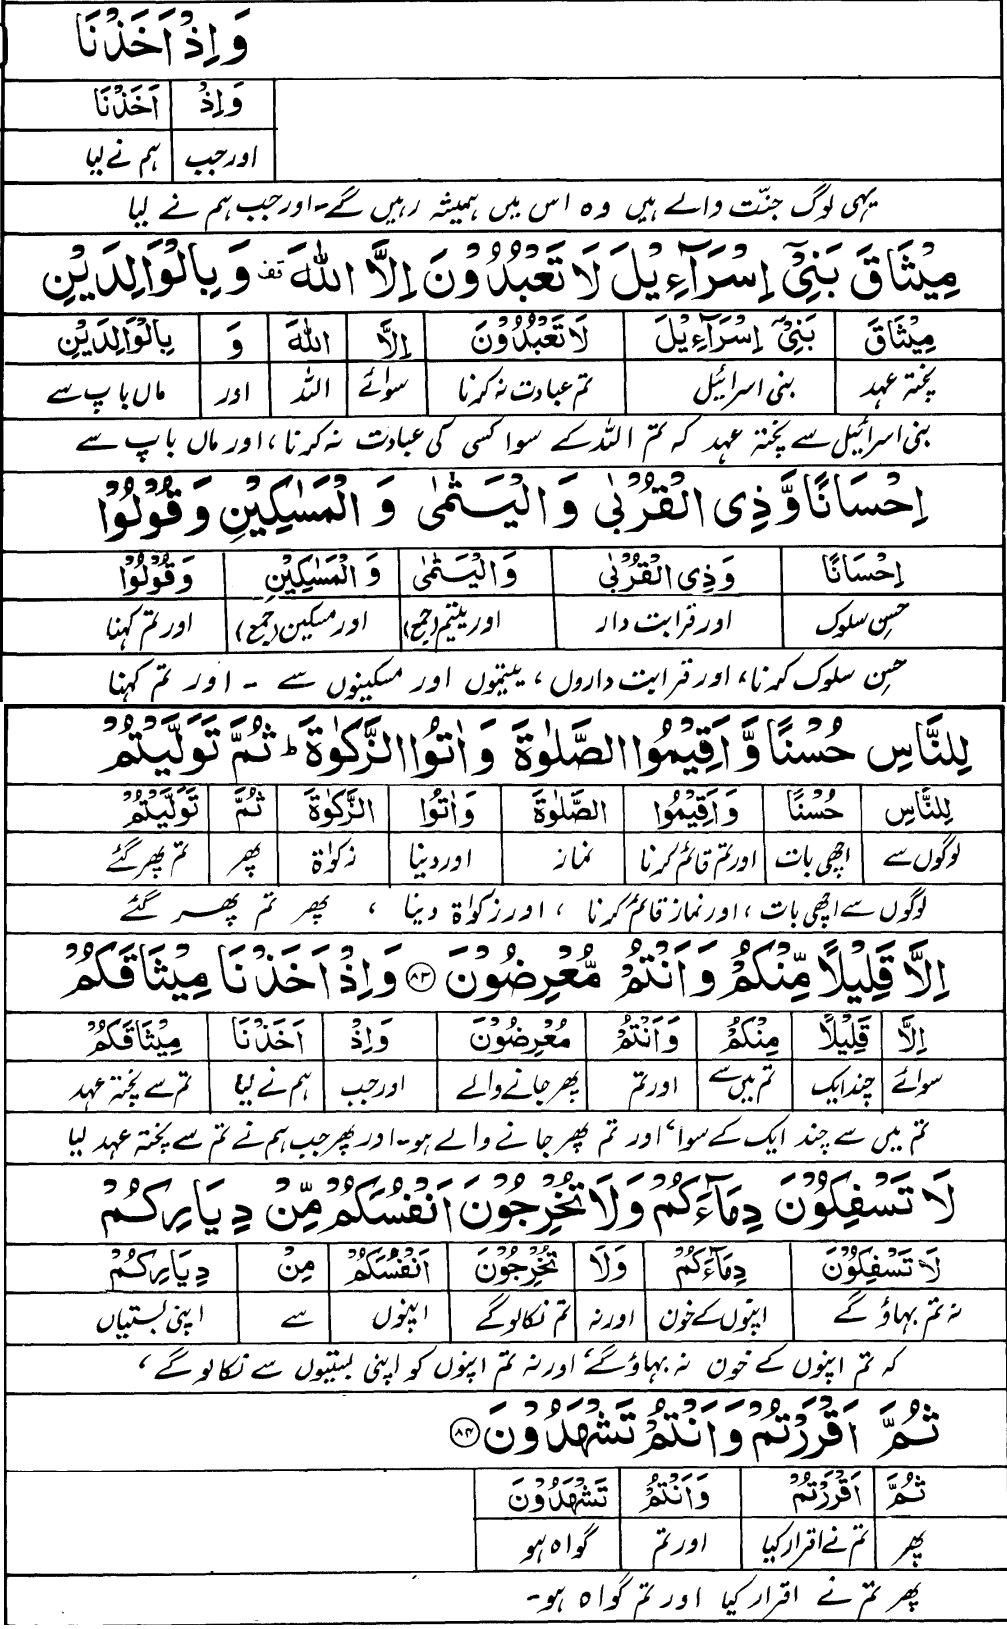 وَاِذْ اَخَذْنَا
وَاِذْ اَخَذْنَا
اور جب ہم نے لیا
یہی لوگ جنّت والے ہیں وہ اس میں ہمیشہ رہیں گے۔ اور جب ہم نے لیا
مِيْثَاقَ بَنِيْٓ اِسْرَآءِيْلَ لَا تَعْبُدُوْنَ اِلَّا اللّٰهَ قف وَبِالْوَالِدَيْنِ
مِيْثَاقَ بَنِيْٓ اِسْرَآءِيْلَ لَا تَعْبُدُوْنَ اِلَّا اللّٰهَ وَ بِالْوَالِدَيْنِ
پختہ عہد بنی اسرائیل تم عبادت نہ کرنا سوائے اللہ اور ماں باپ سے
بنی اسرائیل سے پختہ عہد کہ تم اللہ کے سوا کسی کی عبادت نہ کرنا، اور ماں باپ سے
اِحْسَانًا وَّذِي الْقُرْبٰى وَالْيَتٰمٰى وَالْمَسٰكِيْنِ وَقُوْلُوْا
اِحْسَانًا وَذِي الْقُرْبٰى وَالْيَتٰمٰى وَالْمَسٰكِيْنِ وَقُوْلُوْا
حسن سلوک اور قرابت دار اور یتیم (جمع) اور مسکین (جمع) اور تم کہنا
حسن سلوک کرنا، اور قرابت داروں، یتیموں اور مسکینوں سے ۔ اور تم کہنا
لِلنَّاسِ حُسْنًا وَّاَقِيْمُوا الصَّلٰوةَ وَاٰتُوا الزَّكٰوةَ ؕ ثُمَّ تَوَلَّيْتُمْ
لِلنَّاسِ حُسْنًا وَاَقِيْمُوا الصَّلٰوةَ وَاٰتُوا الزَّكٰوةَ ثُمَّ تَوَلَّيْتُمْ
لوگوں سے اچھی بات اور تم قائم کرنا نماز اور دینا زکوٰۃ پھر تم پھر گئے
لوگوں سے اچھی بات، اور نماز قائم کرنا، اور زکوٰۃ دینا، پھر تم پھر گئے
اِلَّا قَلِيْلًا مِّنْكُمْ وَاَنْتُمْ مُّعْرِضُوْنَ ۸۳ وَاِذْ اَخَذْنَا مِيْثَاقَكُمْ
اِلَّا قَلِيْلًا مِنْكُمْ وَاَنْتُمْ مُعْرِضُوْنَ وَاِذْ اَخَذْنَا مِيْثَاقَكُمْ
سوائے چند ایک تم میں سے اور تم پھر جانے والے اور جب ہم نے لیا تم سے پختہ عہد
تم میں سے چند ایک کے سوا، اور تم پھر جانے والے ہو۔ اور پھر جب ہم نے تم سے پختہ عہد لیا
لَا تَسْفِكُوْنَ دِمَآءَكُمْ وَلَا تُخْرِجُوْنَ اَنْفُسَكُمْ مِّنْ دِيَارِكُمْ
لَا تَسْفِكُوْنَ دِمَآءَكُمْ وَلَا تُخْرِجُوْنَ اَنْفُسَكُمْ مِنْ دِيَارِكُمْ
نہ تم بہاؤ گے اپنوں کے خون اور نہ تم نکالو گے اپنوں سے اپنی بستیاں
کہ تم اپنوں کے خون نہ بہاؤ گے، اور نہ تم اپنوں کو اپنی بستیوں سے نکالو گے،
ثُمَّ اَقْرَرْتُمْ وَاَنْتُمْ تَشْهَدُوْنَ ۸۴
ثُمَّ اَقْرَرْتُمْ وَاَنْتُمْ تَشْهَدُوْنَ
پھر تم نے اقرار کیا اور تم گواہ ہو
پھر تم نے اقرار کیا اور تم گواہ ہو۔